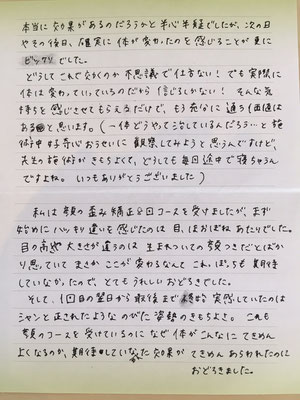 本当に効果があるのだろうかと半心半疑でしたが、次の日
やその後日、確実に体が変わったのを感じることが更に
ビックリでした。
どうしてこれで良くなのか不思議で仕方ない！でも実際に
体は変わっていっているのだから信じるしかない！そんな気
持ちを感じさせてもらえるだけで、もう充分に通う価値は
あると思います。(一体どうやって治しているんだろう…と施
術中する奇心おうせいに観察してみようと思うんですけど、
先生の施術がきもちよくて、どうしても毎回途中で寝ちゃうん
ですよね。いつもありがとうございました)
私は顎の歪み矯正8回コースを受けましたが、まず
始めにハッキリ違いを感じたのは目、ほおぼねあたりでした。
目の高さや大きさが違うのは生まれついての顎つきだとばか
り思っていてまさかここが変わるなんてこれっぽっちも期待
していなかったので、とてもうれしいおどろきでした。
そして、1回目の翌日から最後まで実感していたのは
シャンと正されたようなのびた姿勢のきもちよさ。これも
顎のコースを受けているのになぜ体がこんなにてきめん
よくなるのか、期待していなかった効果がてきめんあらわれたのに
おどろきました。